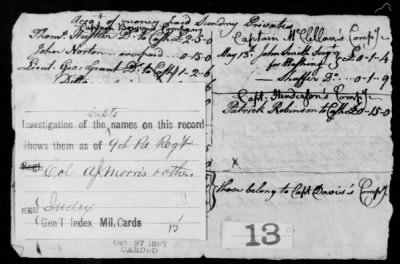 Acct of money paid Sundry Privates
Captn Bowers Company
Thoms Shaffer Dr to Cash £2..5..0
John Norton 0..15..0
Lieut. Geo: Grant Dr to Cash 1..2..6
Ditto
Captain McClellan's Compy
May 13th John Smith Sergt
for Washing 0..1..4
Shaffer Do 0..1..9
Capt. Henderson's Compy
Patrick Robinson to Cash £0..15..0
These belong to Capt Davis's Compy
Capts
Investigation of the names on this record
shows them as of 9th Pa Regt
Regt. Col. A J Morris & others
SEE Index
Gen'l Index Mil. Cards 15
Oct 27 1897
CARDED
13